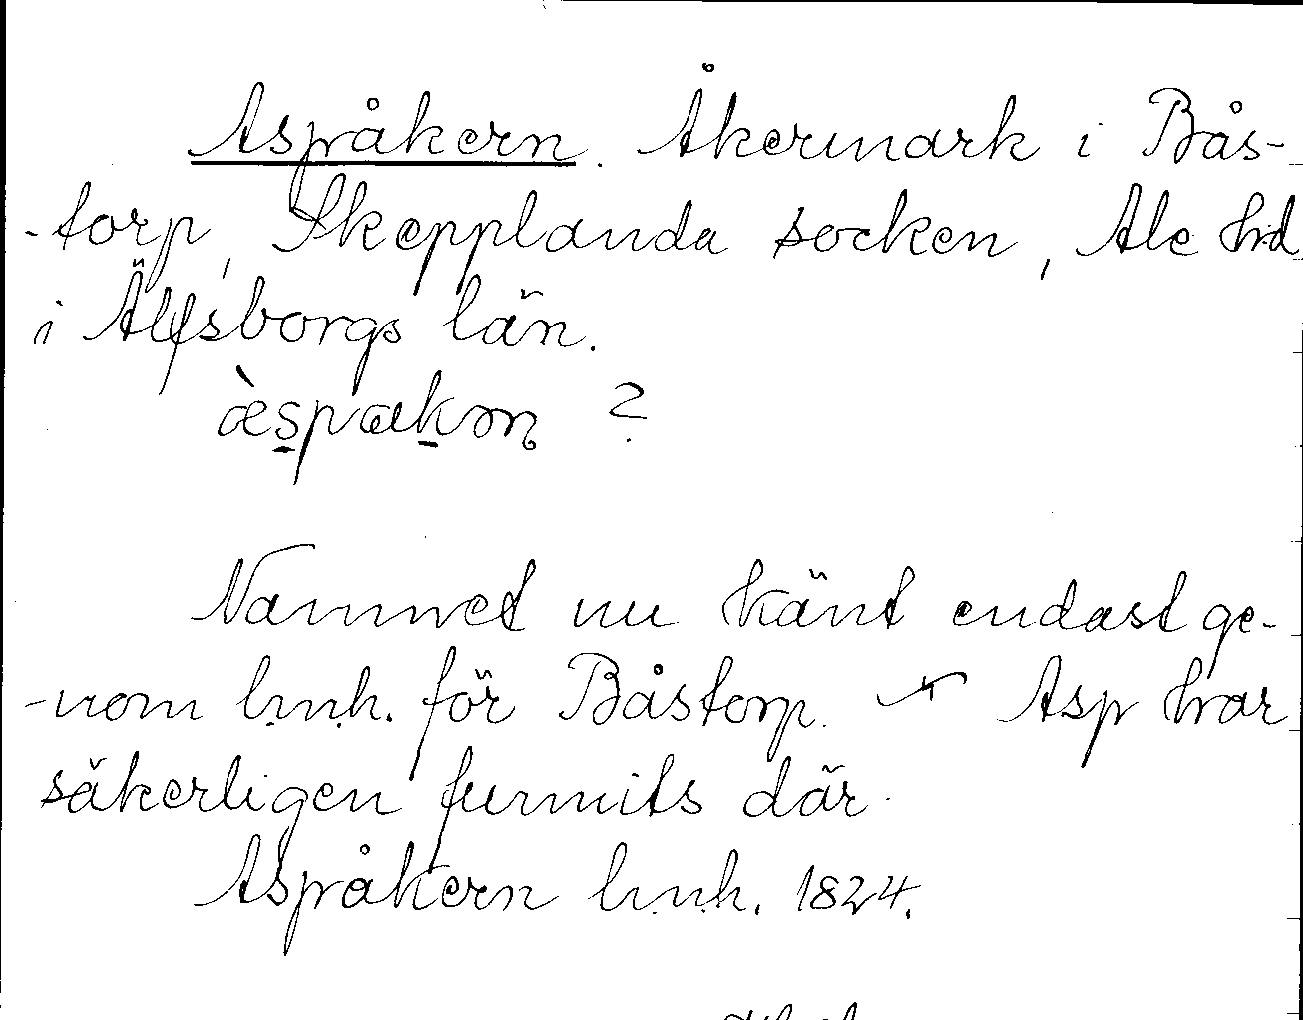 Aspåkern. Åkermark i Bås-
-torp, Skepplanda socken, Ale hd
i Älfsborgs län.
æ̀spakɷn ?
Namnet nu känt endast ge-
-nom l.m.h. för Båstorp. Asp har
säkerligen funnits där.
Aspåkern l.m.h. 1824.